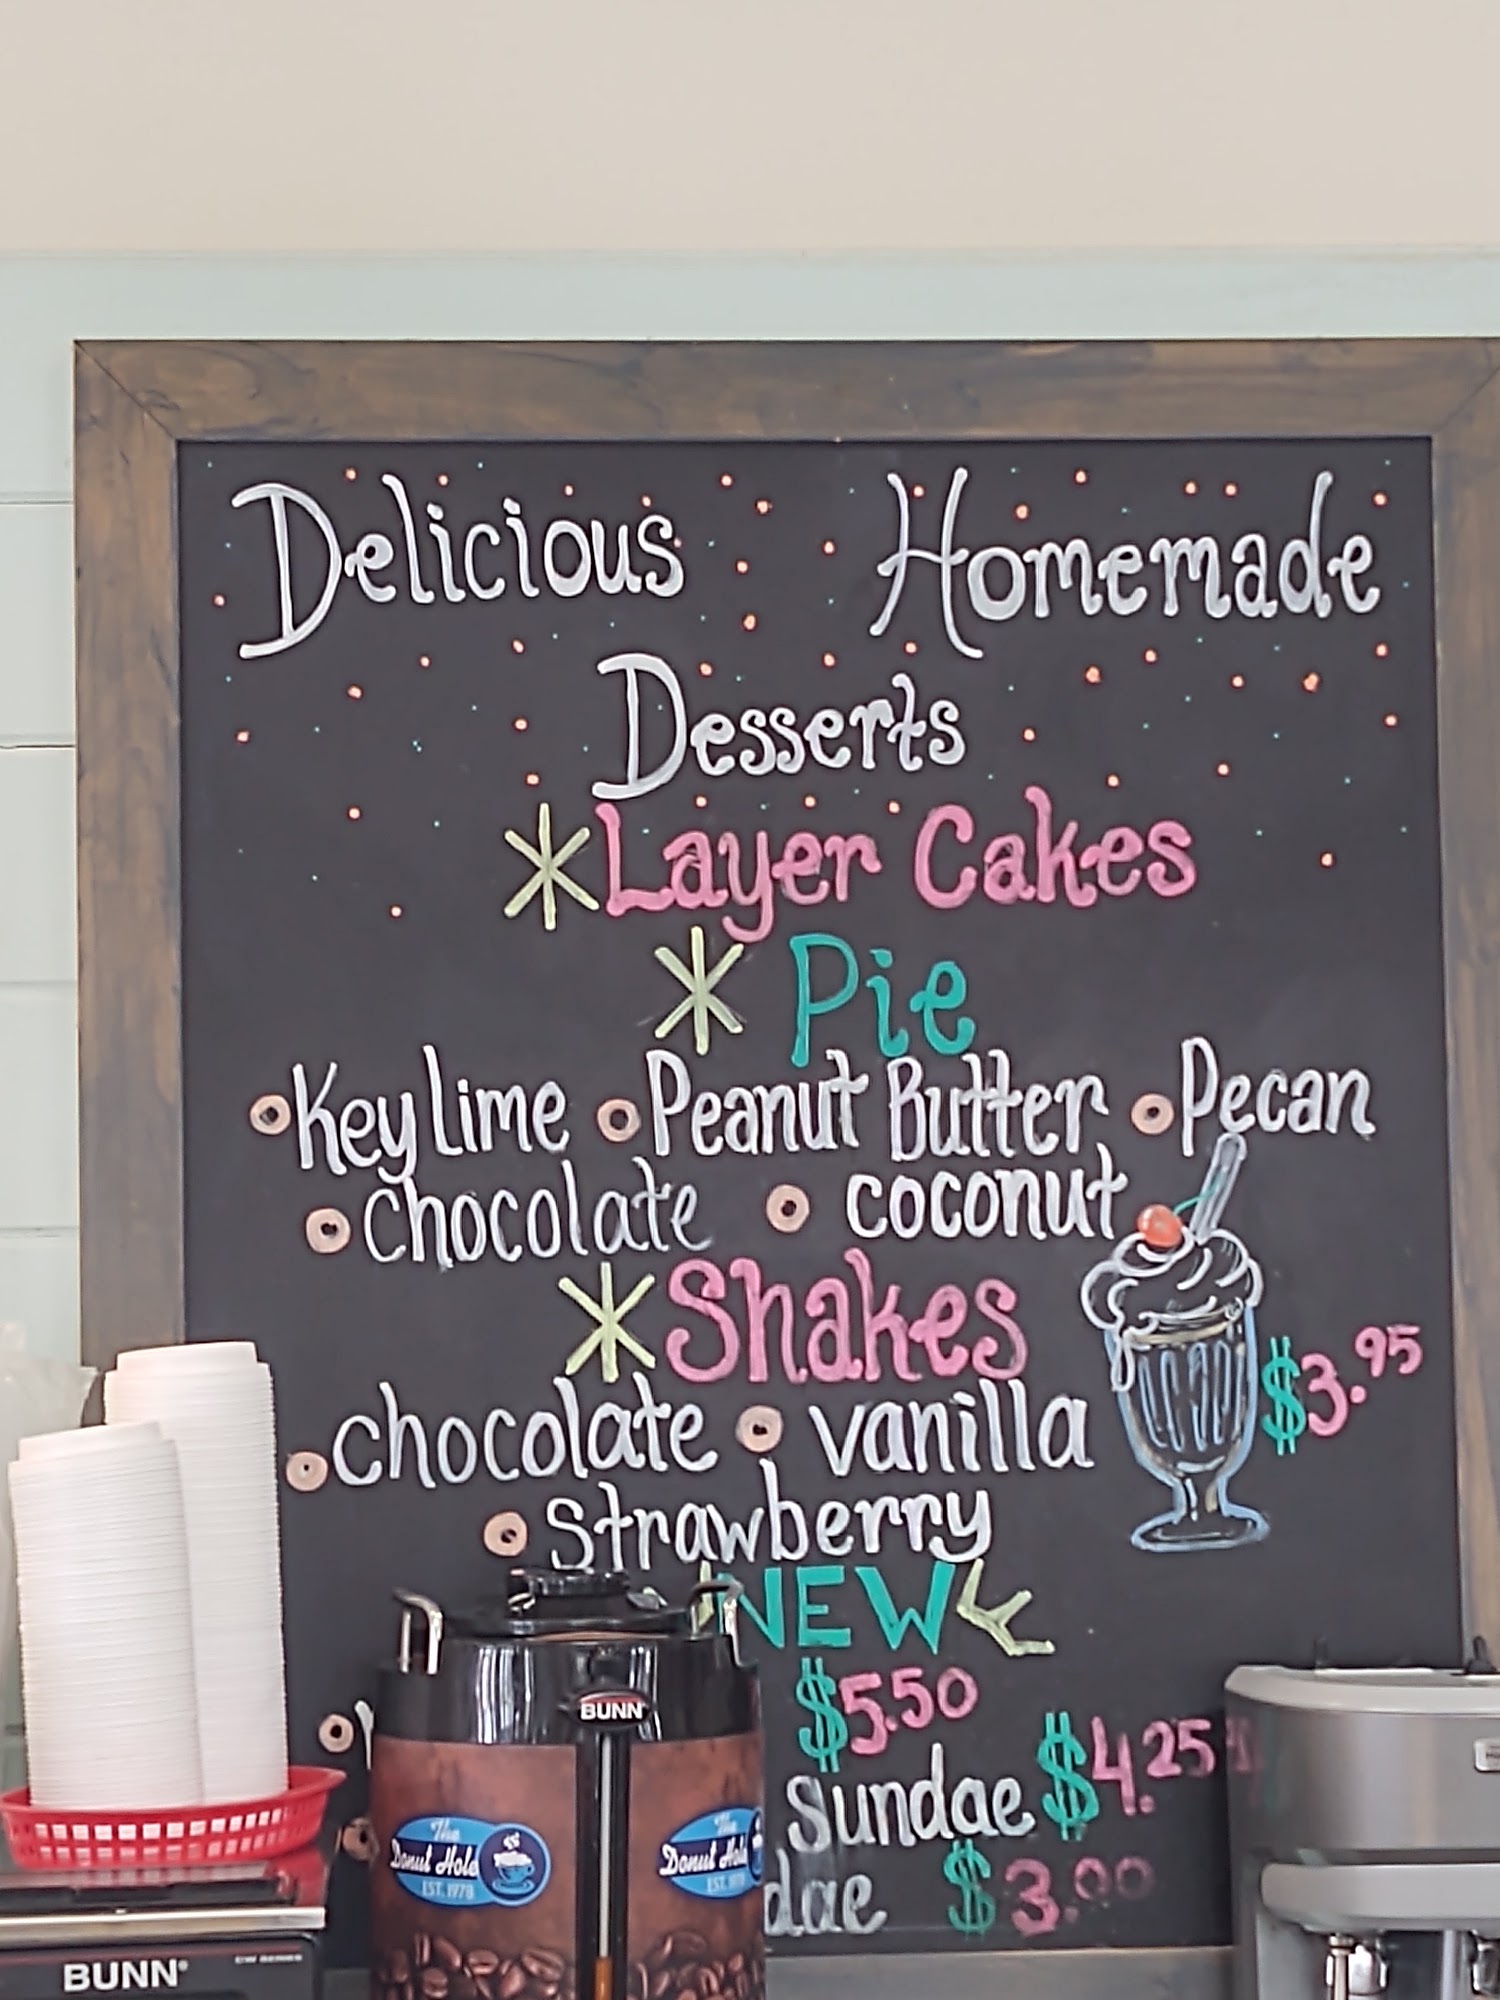 Delicious Homemade
Desserts
*Layer Cakes
* Pie
•Key lime •Peanut Butter •Pecan
•Chocolate • coconut
*Shakes
$3.95
•chocolate • vanilla
•Strawberry
NEW
$5.50
sundae $4.25
$3.00
BUNN
The
Donut Hole
EST. 1978
The
Donut Hole
EST. 1978
BUNN®